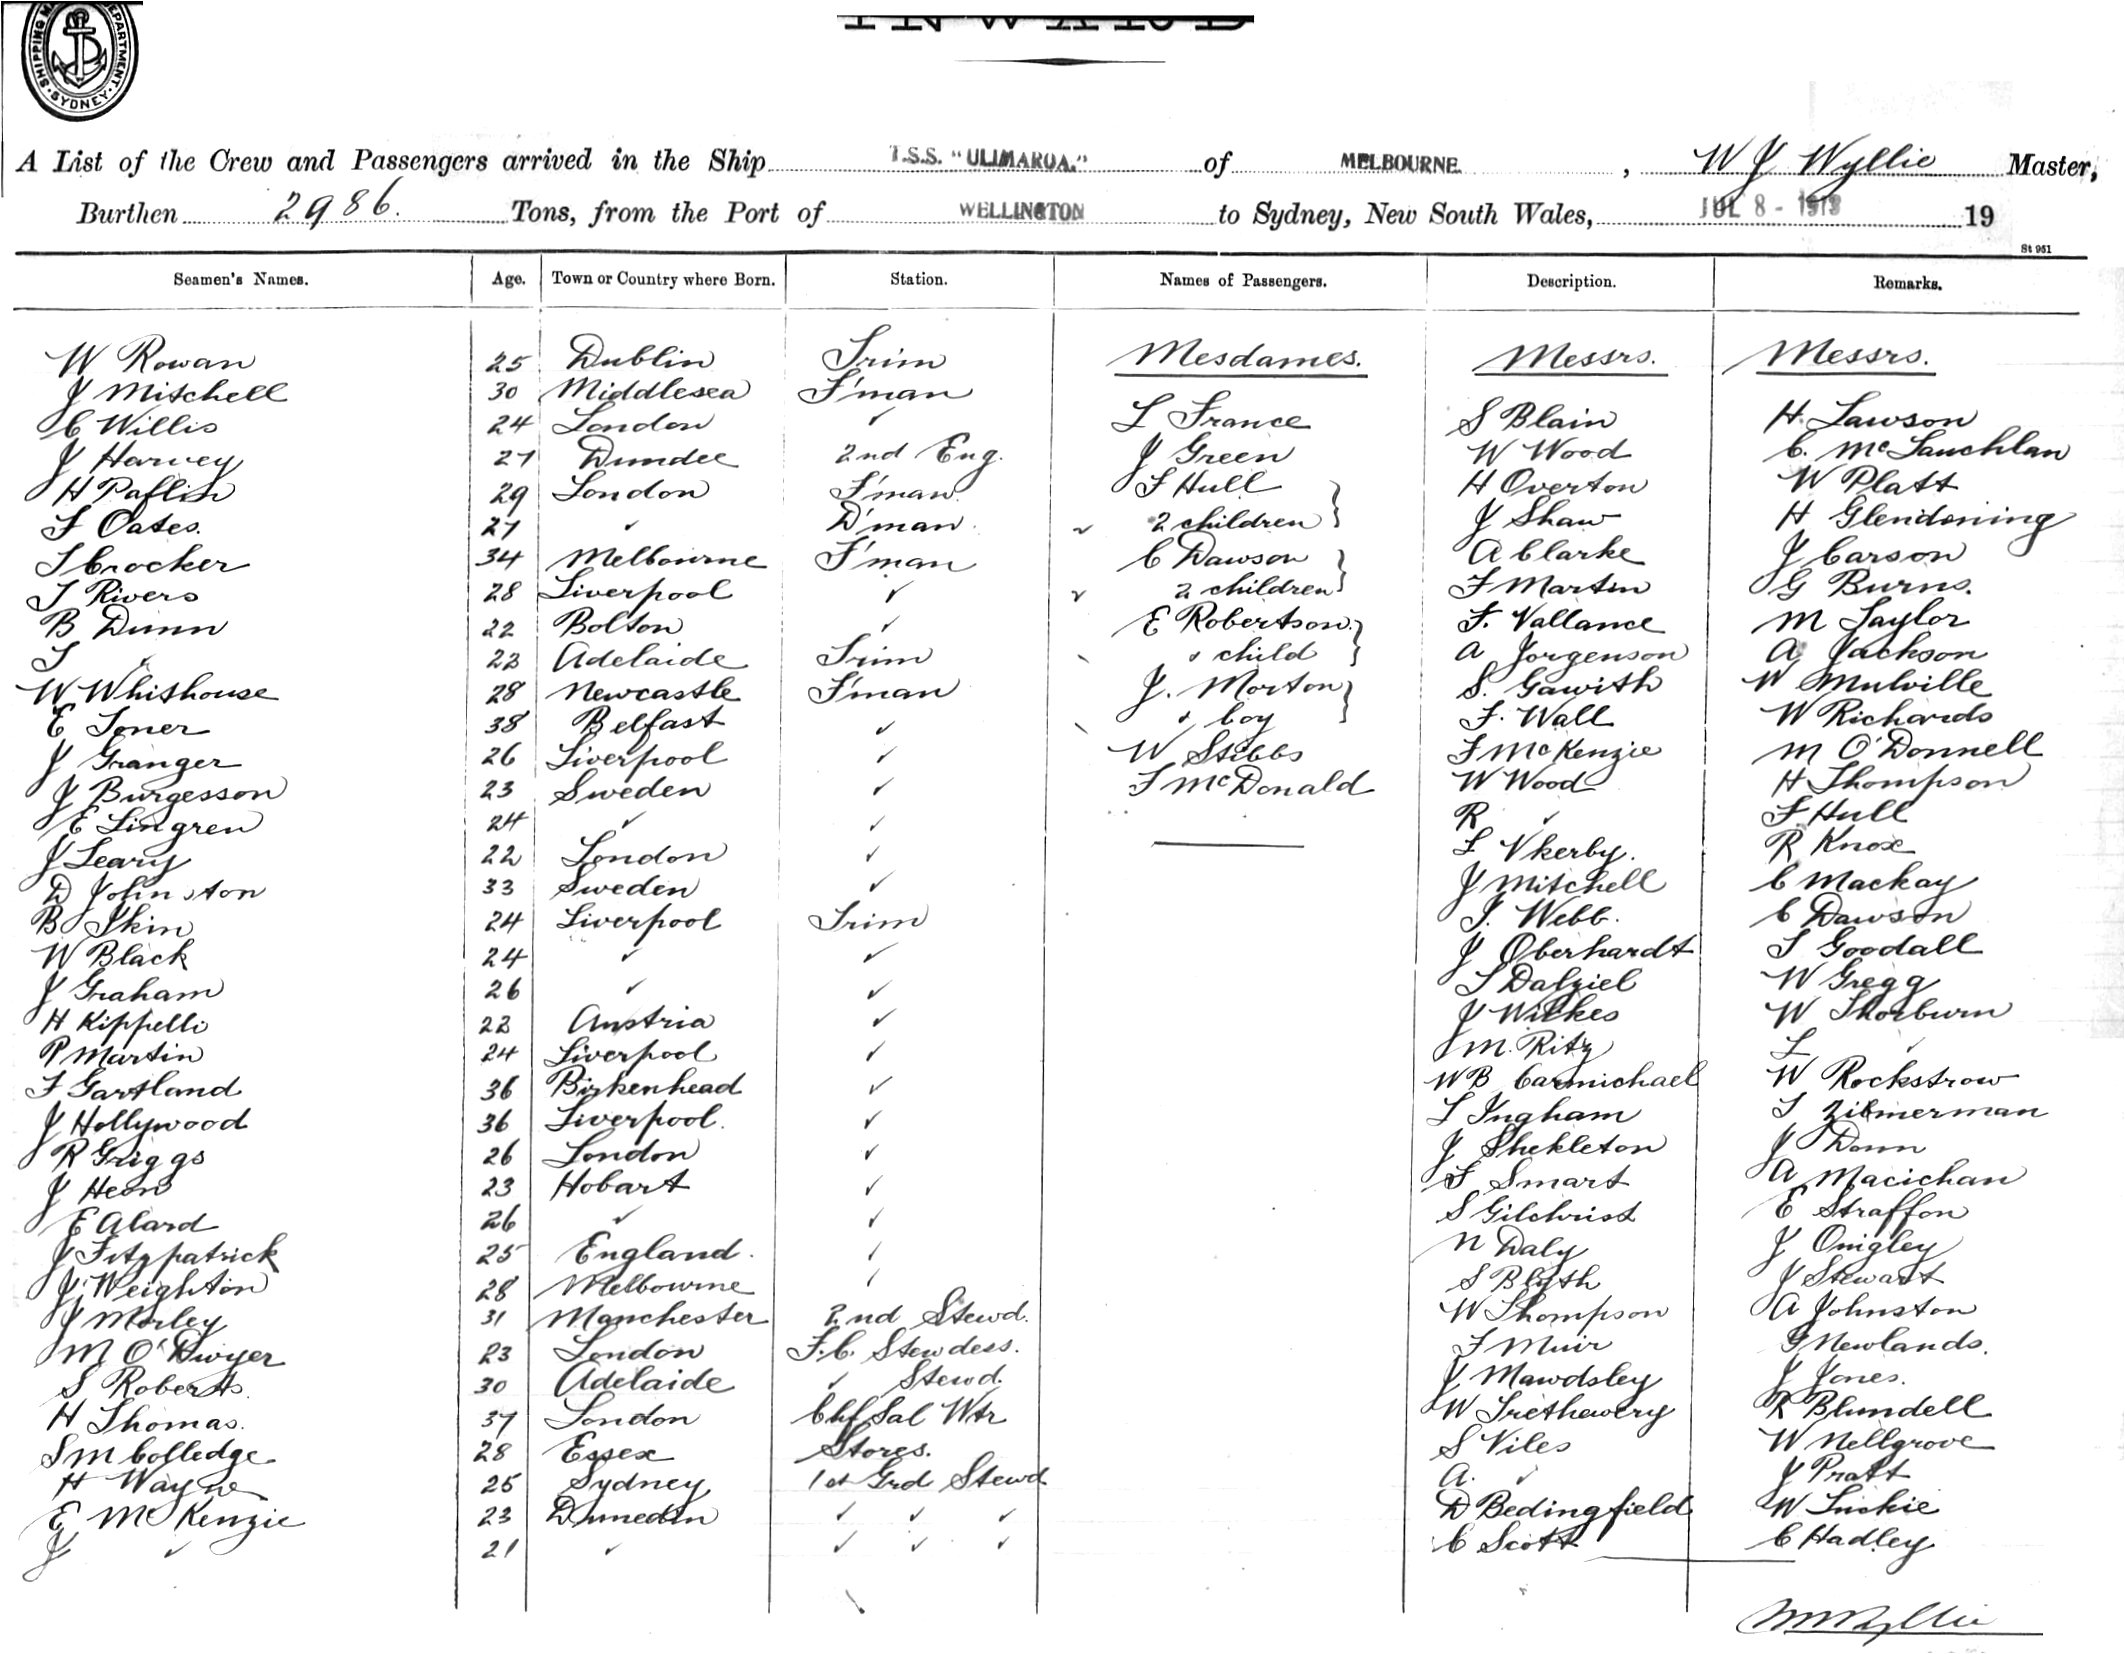 SHIPPING MA DEPARTMENT. SYDNEY.
INWARD
A List of the Crew and Passengers arrived in the Ship T.S.S. "ULIMAROA." of MELBOURNE, W J Wyllie Master,
Burthen 2986. Tons, from the Port of WELLINGTON to Sydney, New South Wales, JUL 8 - 1913 19
St 951
Seamen's Names. Age. Town or Country where Born. Station. Names of Passengers. Description. Remarks.
W Rowan 25 Dublin Trim Mesdames. Messrs. Messrs.
J Mitchell 30 Middlesea F'man
C Willis 24 London ✓ L France S Blain H Lawson
J Harvey 27 Dundee 2nd Eng. J Green W Wood C. McLauchlan
H Paflin 29 London F'man F Hull H Overton W Platt
F Oates. 27 ✓ D'man ✓ 2 children J Shaw H Glendening
T Crocker 34 Melbourne F'man C Dawson A Clarke J Carson
T Rivers 28 Liverpool ✓ ✓ 2 children F Martin G Burns.
B Dunn 22 Bolton ✓ E Robertson F. Vallance M Taylor
T ✓ 22 Adelaide Trim & child A Jorgenson A Jackson
W Whithouse 28 Newcastle F'man J. Morton S. Gawith W Mulville
E Toner 38 Belfast ✓ & boy F. Wall W Richards
J Granger 26 Liverpool ✓ W Stibbs F McKenzie M O'Donnell
J Burgesson 23 Sweden ✓ F McDonald W Wood H Thompson
E Lingren 24 ✓ ✓ R ✓ F Hull
J Leary 22 London ✓ L Vkerby. R Knox
D Johnston 33 Sweden ✓ J Mitchell C Mackay
B Skin 24 Liverpool Trim T. Webb. C Dawson
W Black 24 ✓ ✓ J Oberhardt T Goodall
J Graham 26 ✓ ✓ T Dalziel W Gregg
H Kippelli 22 Austria ✓ J Wilkes W Thorburn
P Martin 24 Liverpool ✓ M. Ritz L ✓
F Gartland 36 Birkenhead ✓ W B Carmichael W Rockstrow
J Hollywood 36 Liverpool. ✓ L Ingham T Zibmerman
R Griggs 26 London ✓ J Shekleton J Donn
J Heon 23 Hobart ✓ F Smart A Macichan
E Alard 26 ✓ ✓ S Gilchrist E Straffon
J Fitzpatrick 25 England. ✓ N Daly J Quigley
J Weighton 28 Melbourne ✓ S Blyth J Stewart
J Morley 31 Manchester 2nd Stewd. W Thompson A Johnston
M O'Dwyer 23 London F.C. Stewdess. F Muir G Newlands.
S Roberts. 30 Adelaide ✓ Stewd. J Mawdsley J Jones.
H Thomas. 37 London Chf Sal Wtr W Trethewery R Blundell
S M Colledge 28 Essex Stores. S Viles W Nellgrove
H Wayne 25 Sydney 1st Grd Stewd A. ✓ J Pratt
E McKenzie 23 Dunedin ✓ ✓ ✓ D Bedingfield W Luckie
J ✓ 21 ✓ ✓ ✓ ✓ C Scott C Hadley
W J Wyllie